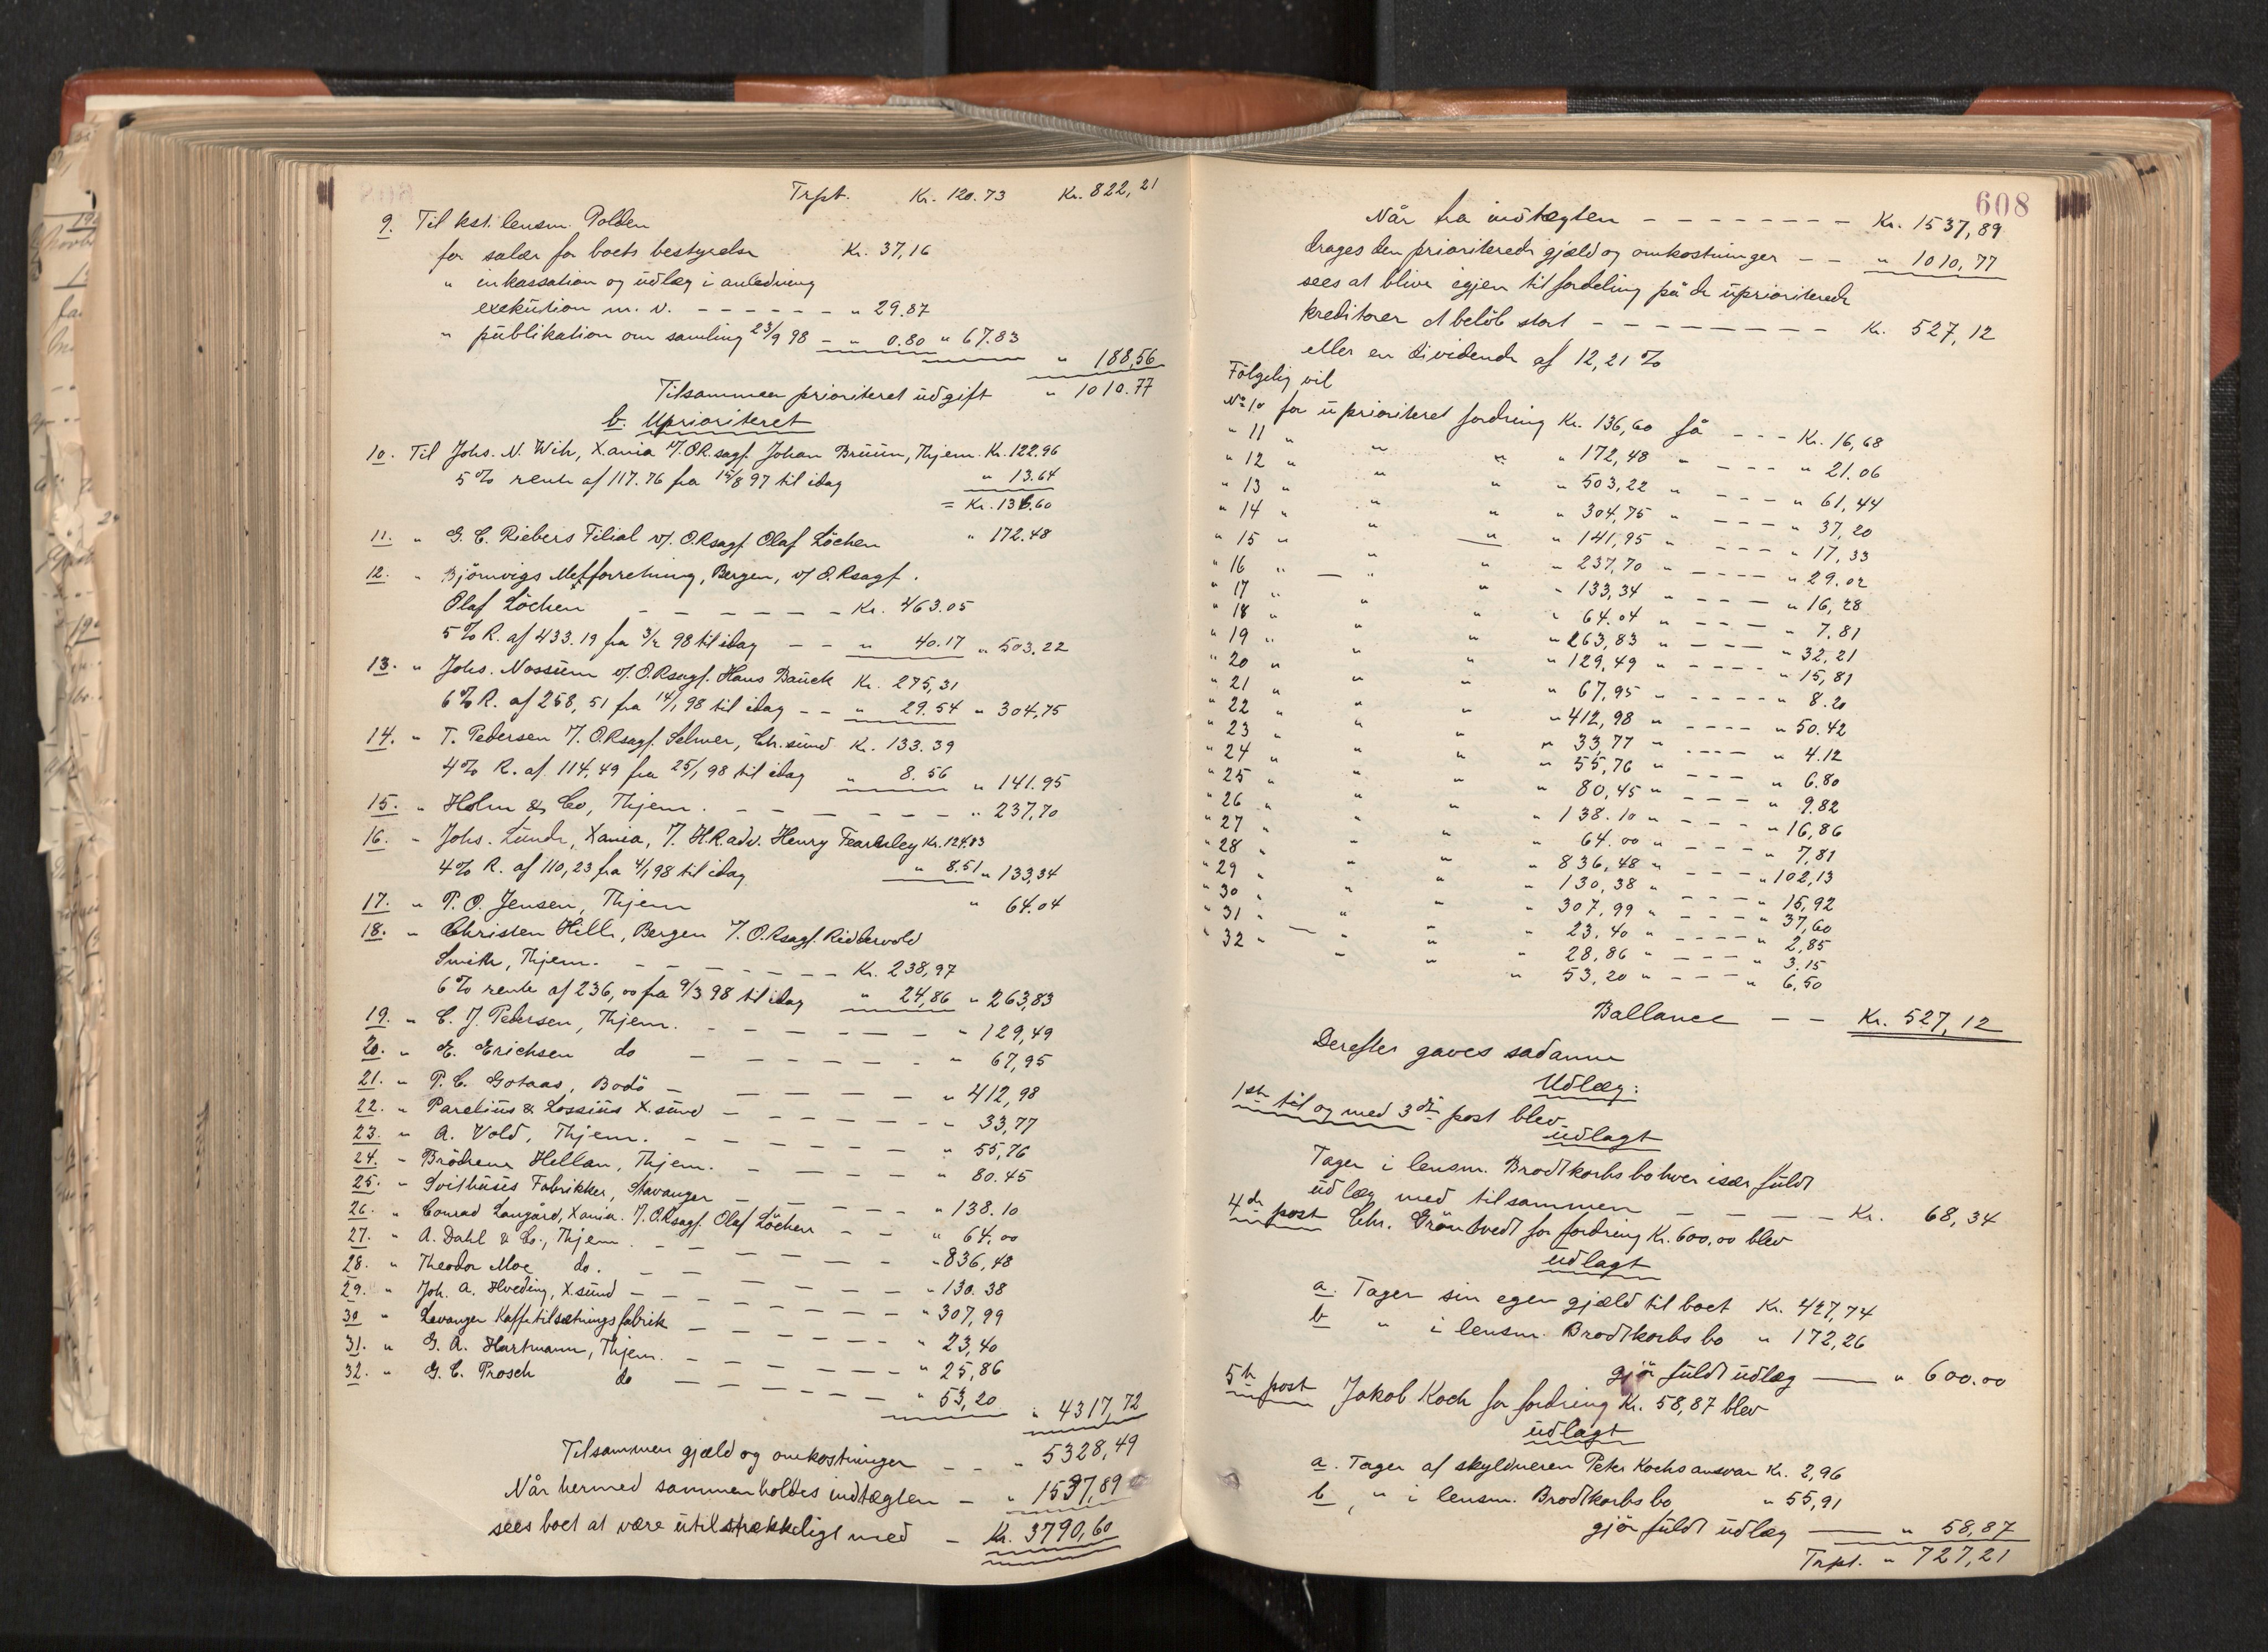 Trpt. Kr. 120.73 Kr. 822,21
9. Til kst. lensm. Polden
for salær for boets bestyrelse Kr. 37,16
" inkassation og udlæg i anledning
exekution m. v. - - - - - - " 29.87
" publikation om samling 23/9 98 - " 0.80 " 67.83
" 188,56
Tilsammen prioriteret udgift " 1010.77
b. Uprioriteret
10. Til Johs. N. Wik, Xania v/. O.R.sagf. Johan Bruun, Thjem. Kr. 122.96
5 % rente af 117.76 fra 15/8 97 til idag " 13.64
= Kr. 136.60
11. " G. C. Riebers Filial v/. O.Rsagf. Olaf Löchen " 172.48
12. " Bjørnvigs Mefforretning, Bergen, v/ O.Rsagf.
Olaf Löchen - - - - - - Kr. 463.05
5 % R. af 433.19 fra 3/2 98 til idag - - " 40.17 " 503.22
13. " Johs. Nossum v/. O.Rsagf. Hans Bauck Kr. 275,31
6 % R. af 258,51 fra 14/1 98 til idag - - " 29.54 " 304,75
14. " T. Pedersen v/. O.Rsagf. Selmer, Chr.sund Kr. 133.39
4 % R. af 114,49 fra 25/1 98 til idag " 8.56 " 141.95
15. " Holm & Co, Thjem. - - - - - - - " 237,70
16. " Johs. Lunde, Xania, v/. H.R.adv. Henry Fearnley Kr. 124.83
4 % R. af 110,23 fra 4/1 98 til idag " 8.51 " 133,34
17. " P. O. Jensen, Thjem " 64.04
18. " Christen Hille, Bergen v/. O.Rsagf. Riddervold
Smith, Thjem. - - - - - - - Kr. 238,97
6 % rente af 236,00 fra 9/3 98 til idag " 24,86 " 263,83
19. " C. J. Pedersen, Thjem. - - - - - - " 129,49
20. " E. Erichsen do - - - - - - " 67,95
21. " P. C. Gotaas, Bodö - - - - - " 412,98
22. " Parelius & Lossius X.sund - - - - - - " 33,77
23. " A. Vold, Thjem. - - - - - - " 55,76
24. " Brödrene Hellan, Thjem. - - - - - " 80.45
25. " Svithuns Fabrikker, Stavanger - - - - - " 138.10
26. " Conrad Langård, Xania. v/. O.Rsagf. Olaf Löchen - - " 64.00
27. " A. Dahl & Co., Thjem. - - - - - - " 836,48
28. " Theodor Moe do. - - - - - - " 130.38
29. " Joh. A. Hveding, X.sund - - - - - - " 307,99
30 " Levanger Kaffetilsætningsfabrik - - - - - " 23,40
31. " G. A. Hartmann, Thjem. - - - - - - " 25,86
32. " G. C. Prosch do - - - - - - " 53,20 " 4317,72
Tilsammen gjæld og omkostninger - - " 5328,49
Når hermed sammenholdes indtægten - " 1537,89
sees boet at være utilstrækkeligt med - Kr. 3790,60
608
Når fra indtægten - - - - - - - Kr. 1537,89
drages den prioriterede gjæld og omkostninger - - " 1010,77
sees at blive igjen til fordeling på de uprioriterede
kreditorer et belöb stort - - - - - - - - Kr. 527,12
eller en dividende af 12,21 %
Fölgelig vil
No 10 for uprioriteret fordring Kr. 136,60 få - - - Kr. 16,68
" 11 " " " " 172,48 " - - - " 21.06
" 12 " " " " 503,22 " - - - " 61,44
" 13 " " " " 304,75 " - - - " 37,20
" 14 " " " " 141,95 " - - - " 17,33
" 15 " " " " 237,70 " - - - " 29.02
" 16 " " " " 133,34 " - - - " 16,28
" 17 " " " " 64.04 " - - - " 7.81
" 18 " " " " 263,83 " - - - " 32,21
" 19 " " " " 129,49 " - - - " 15,81
" 20 " " " " 67,95 " - - - " 8.20
" 21 " " " " 412,98 " - - - " 50.42
" 22 " " " " 33,77 " - - - " 4.12
" 23 " " " " 55,76 " - - - " 6.80
" 24 " " " " 80,45 " - - - " 9.82
" 25 " " " " 138.10 " - - - " 16,86
" 26 " " " " 64.00 " - - - " 7,81
" 27 " " " " 836,48 " - - - " 102,13
" 28 " " " " 130,38 " - - - " 15,92
" 29 " " " " 307,99 " - - - " 37,60
" 30 " " " " 23.40 " - - - " 2,85
" 31 " " " " 28,86 " - - - " 3.15
" 32 " " " " 53,20 " - - - " 6,50
Ballance - - Kr. 527,12
Derefter gaves sadanne
Udlæg:
1ste til og med 3die post blev
udlagt
Tages i lensm. Brodtkorbs bo hver især fuldt
udlæg med tilsammen - - - - - Kr. 68,34
4de post Chr. Gröntvedt for fordring Kr. 600,00 blev
udlagt
a. Tager sin egen gjæld til boet Kr. 427,74
b " i lensm. Brodtkorbs bo " 172,26
gjör fuldt udlæg — " 600.00
5te post Jakob Koch for fordring Kr. 58,87 blev
udlagt
a. Tager af skyldneren Peter Kochs ansvar Kr. 2,96
b " i lensm. Brodtkorbs bo " 55,91
gjör fuldt udlæg — " 58,87
Trpt. " 727,21